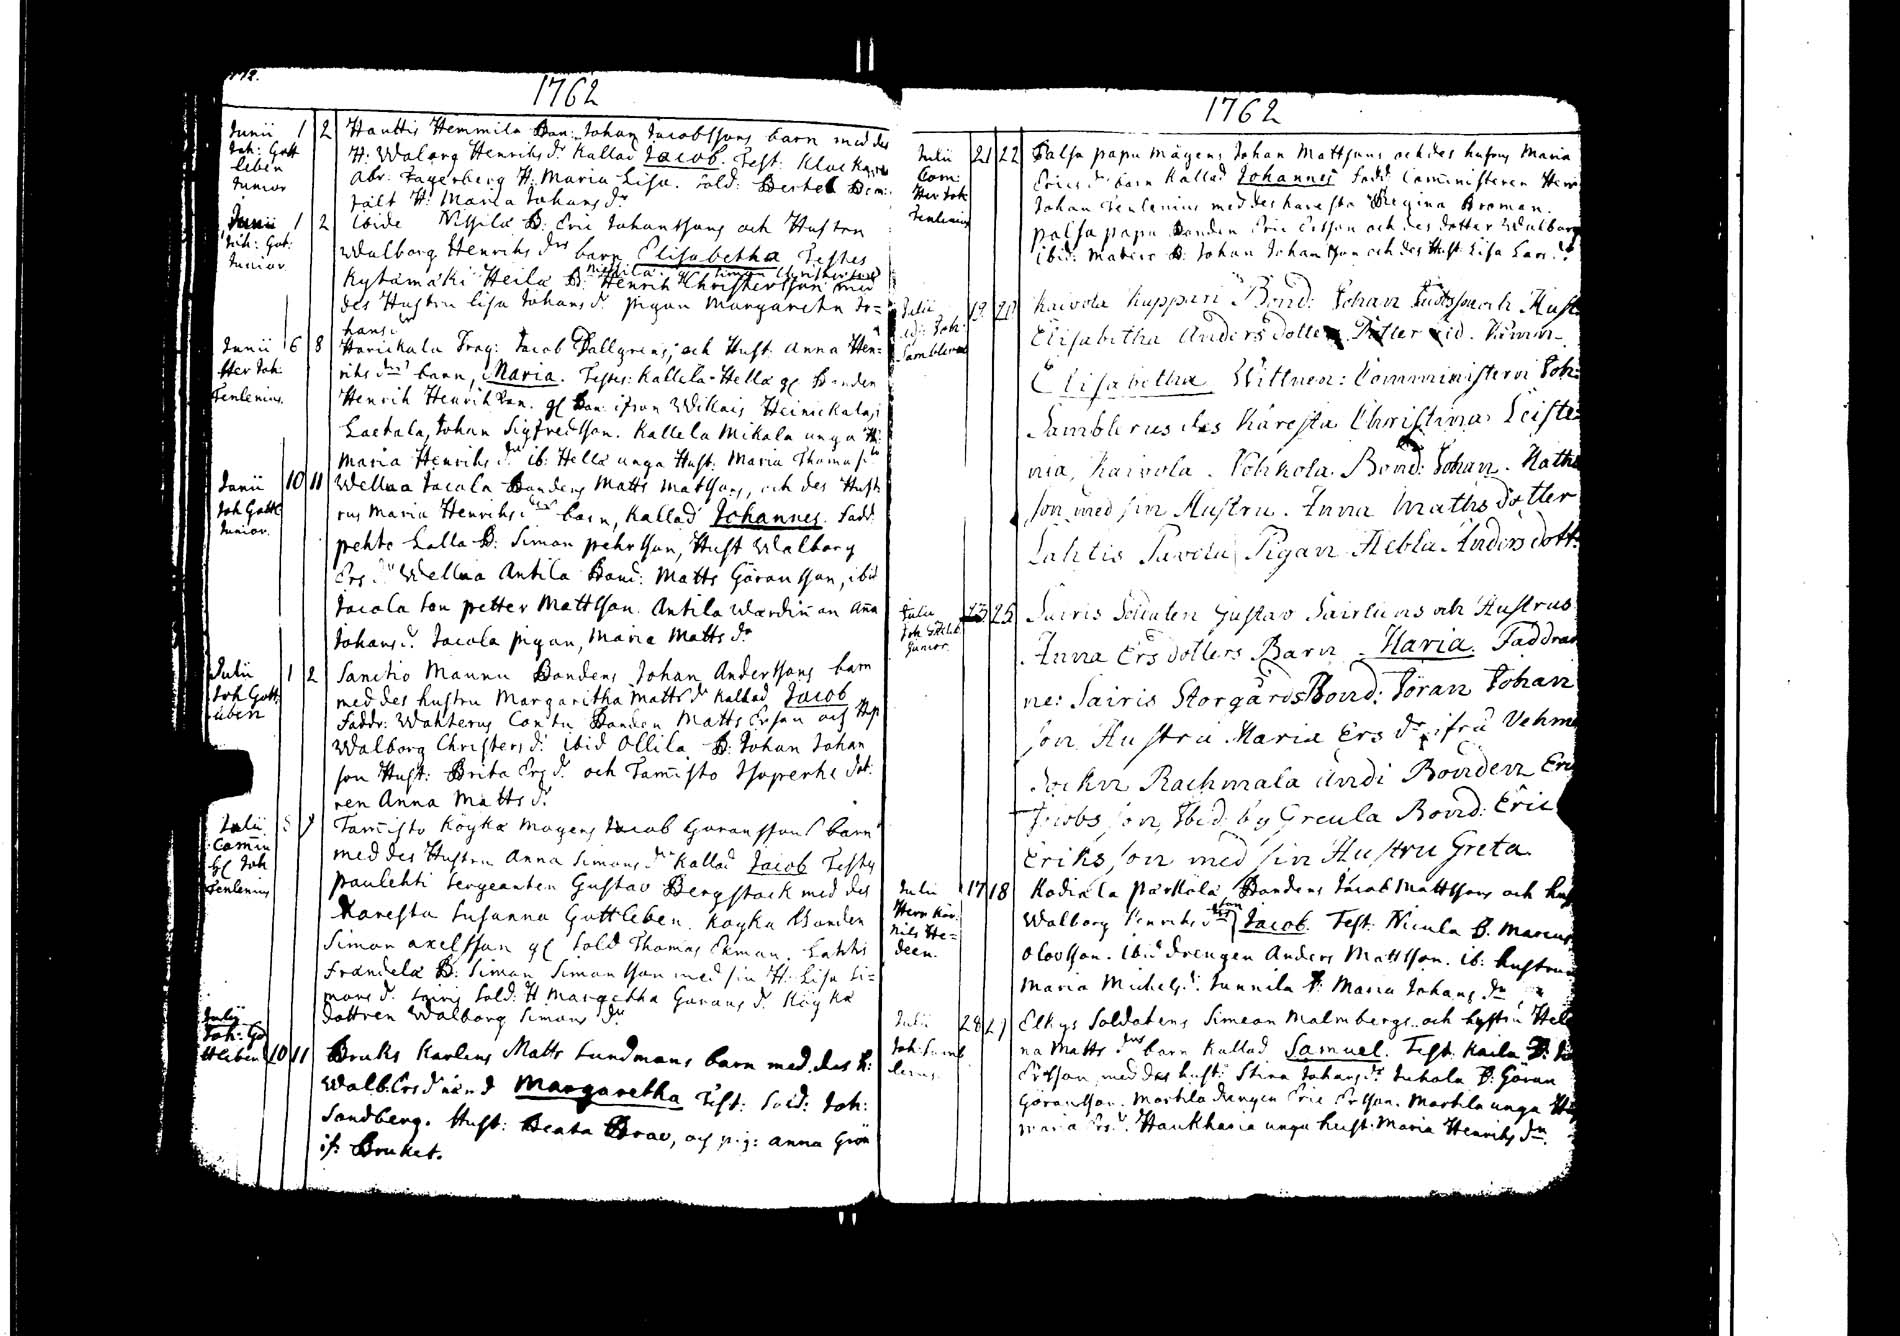 1762
Junii 1 2 Hauttis Hemmila Bon: Johan Jacobssons barn med des
Joh: Gott H: Walborg Henriks dr kallad Jacob. Test: Klockaren
leben Abr: Fagerberg H: Maria Lisa. Sold: Bertel Bom:
Junior fält H: Maria Johans dr
Junii 1 2 ibide Nissilä B: Eric Johanssons och Hustru
Joh: Got: Walborg Henriks drs barn Elisabetha Testes
Junior Kytämäki Heilä B: Henrik Christersson med
des Hustru Lisa Johans dr pigan Margaretha Jo=
hans dr
Junii 6 8 Harickala Trag: Jacob Tallgrens, och Hust. Anna Hen=
Her Joh: riks drs barn, Maria. Testes: Kallela-Hella gl Bonden
Tenlenius. Henrik Henriksson. gl Bon. ifron Willais Heinickala,
Laetala, Johan Sigfredsson. Kallela Mikola unga H:
Maria Henriks dr ib: Hella unga Hust. Maria Thomas dr
Junii 10 11 Wellua Jacola Bondens Matts Matssons, och des Hust
Joh Gottl rus Maria Henriks drs barn, kallad Johannes. Fadd.
Junior. pehto Lalla B: Simon pehrsson, Hust Walborg
Ers dr Wellua Antila Bond: Matts Göransson, ibid
Jacola Son petter Mattsson. Antila Wärdinnan Anna
Johans dr. Jacola pigan, Maria Matts dr
Julii 1 2 Sanctio Maunu Bondens Johan Anderssons barn
Joh Gott: med des hustru Margaritha Matts dr kallad Jacob
leben Faddr: Wahterus Contu Bonden Matts Ersson och Hu
Walborg Christers dr ibid Ollila B: Johan Johan
son Hust: Brita Ers dr. och Tamisto Isoperhe dot:
ren Anna Matts dr
Julii 8 9 Tamisto Köykä Mågens Jacob Göranssons barn
Comin med des Hustru Anna Simons dr kallad Jacob Testes
HE Joh paulehti Sergeanten Gustav Bergstock med des
Tenlenius Käresta Susanna Gottleben. Köykä Bonden
Simon axelsson gl Sold Thomas Ekman. Lahtis
Frändelä B: Simon Simonsson med sin H: Lisa Si=
mons dr. Sairis Sold: H Margetha Görans dr. Köykä
dottren Walborg Simons dr
Julii
Joh: Go
ttleben 10 11 Bruks Karlens Matts Lundmans barn med des h:
Walb: Ers dr nämd Margaretha Test: Sold: Joh:
Sandberg. Hust: Beata Brav, och pig: Anna Grön
if: Bruket.
1762
Julii 21 22 Palsa papu Mågens Johan Mattsons och des hustrus Maria
Com: Erics dr barn kallad Johannes Fadd. Comministeren Herr
Her Joh Johan Tenlenius med des karesta Regina Broman.
Tenlenius palsa papu Bonden Eric Ersson och des dotter Walborg
ibid: Matere B: Johan Johansson och des Hust Lisa Lars dr
Julii 19 21 Kaivola Kuppari Bond: Johan och Hust
Joh: Elisabetha Anders dotter. Dotter
Samblerus Elisabetha Wittnen: Comministern Joh:
Samblerus des Käresta Christina Leiste
nia, Kaivola. Pohkola. Bond: Johan. Matts
son med sin Hustru. Anna Maths dotter
Lahtis Pavola Pigan Hebla Anders dott:
Julii 23 25 Sairis Soldaten Gustav Sairlins och Hustrus
Joh: Gottleb Anna Ers dotters Barn Maria. Faddrar
Junior. ne: Sairis StorgårdsBond: Jöran Johan
son, Hustru Maria Ers dr ifrå Vehm
Sockn Rachmala Andi Bonden Eri
Jacobs son, Ibid by Greula Bond: Eric
Eriks son med sin Hustru Greta.
Julii 17 18 Kodiala Pärkölä Bondens Jacob Mattssons och hus
Herr Walborg Henriks drs son Jacob. Test. Nicula B. Marcus
Nils He= Olovsson. Ibid drengen Anders Mattsson. ib: hustrun
deen. Maria Michels dr. Junnila B: Maria Johans dr
Julii 28 29 Elkys Soldatens Simeon Malmbergs och hustru Hele
Joh: Samb na Matts drs barn kallad Samuel. Test. Kaila B:
lerus Ersson med des hust: Stina Johans dr Juhola B: Göran
Göransson. Markla drengen Eric Ersson. Markla unga H
Maria Ers dr. Haukkania unga hust: Maria Henriks dr